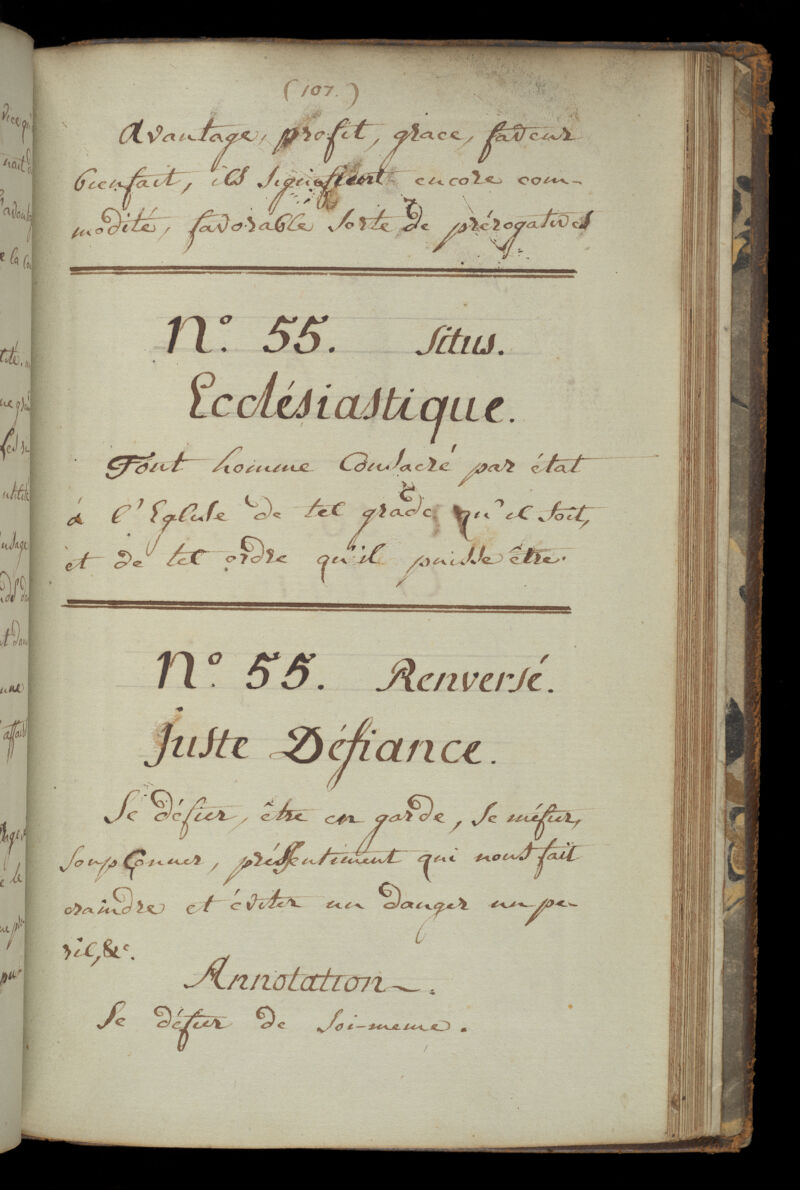 (107.)
Avantage, profit, grace, faveur
bienfait, ils signifient encore com-
modité, favorable sorte de prérogatives
N.° 55. Situs.
Ecclésiastique.
Tout homme Consacré par état
à l'Eglise de tel grade qu'il soit,
et de tel ordre qu'il puisse être.
N.° 55. Renversé.
Juste Défiance.
Se défier, être en garde, se méfier,
soupçonner, préssentiment qui nous fait
craindre et éviter un danger un pe-
ril, &c.
Annotation.
Se défier de soi-meme.